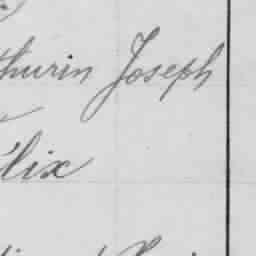 thurin Joseph
élix